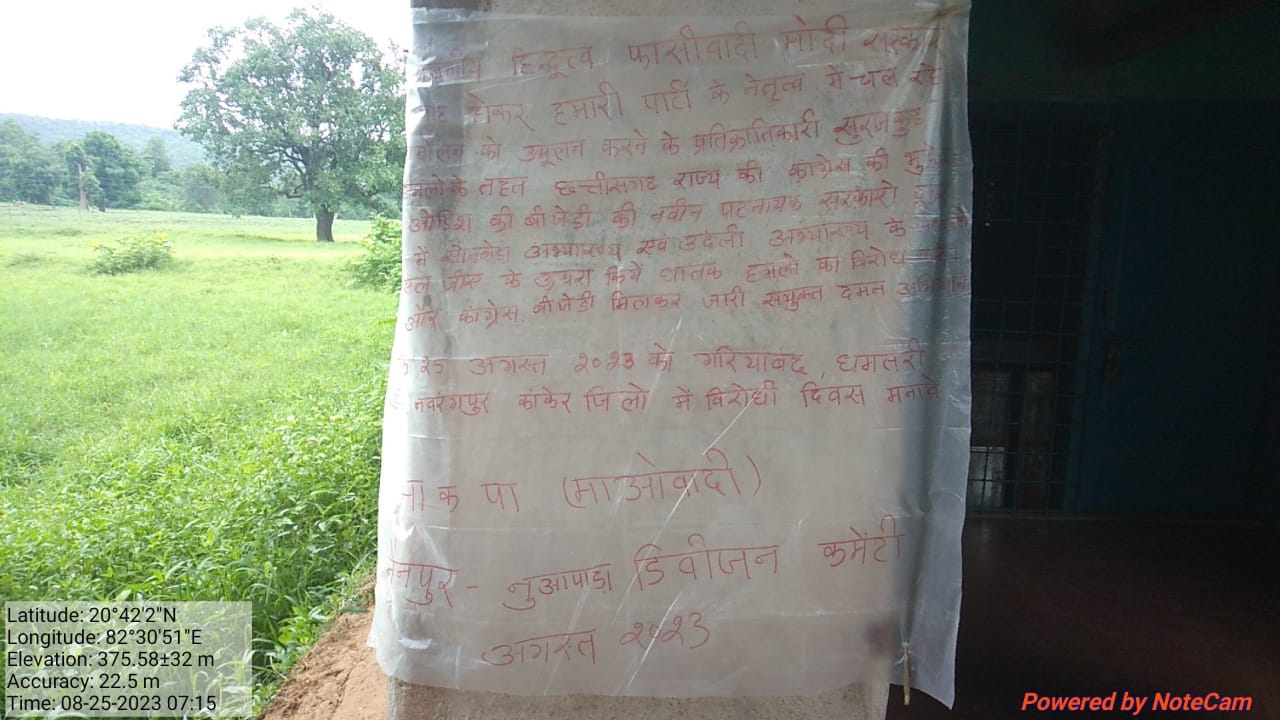 हिन्दूत्व फासीवादी मोदी सरकार
होकर हमारी पार्टी के नेतृत्व में चल रहे
को उमूलन करने के प्रतिक्रांतिकारी सुरजकुंड
हमलो के तहत छत्तीसगढ राज्य की कांग्रेस की
ओडिश की बीजेडी की नवीन पटनायक सरकारो
में सीतानदी अभ्यारण्य एवं उदंती अभ्यारण्य के
के ऊपरा किये घातक हमलो का विरोध
और कांग्रेस, बीजेडी मिलकर जारी संयुक्त दमन अभियान
25 अगस्त २०२३ को गरियाबंद, धमतरी
नवरंगपुर कांकेर जिलो में विरोधी दिवस मनावें
भा क पा (माओवादी)
मैनपुर - नुआपाड़ा डिवीजन कमेंटी
अगस्त २०२३
Latitude: 20°42'2"N
Longitude: 82°30'51"E
Elevation: 375.58±32 m
Accuracy: 22.5 m
Time: 08-25-2023 07:15
Powered by NoteCam